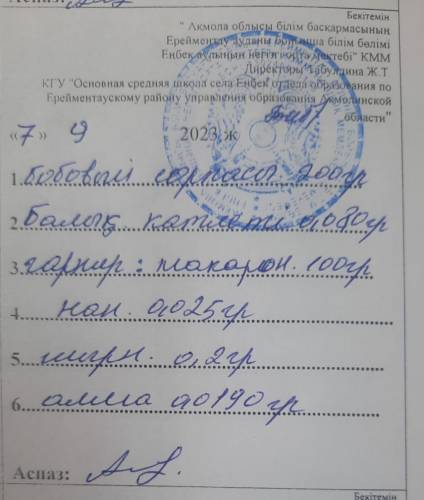 Аспаз:
Бекітемін
" Ақмола облысы білім басқармасының
Ерейментау ауданы бойынша білім бөлімі
Еңбек ауылының негізгі орта мектебі" КММ
Директоры Габулдина Ж.Т
КГУ "Основная средняя школа села Еңбек отдела образования по
Ерейментаускому району управления образования Акмолинской
области"
«7» 9 2023 ж
1. бобовый сорпасы. 200гр
2. Балық катлеті 0,080гр
3. гарнир: макарон. 100гр
4. нан. 0,025гр
5. 0,2гр
6. алма 0,0190гр
Аспаз:
Бекітемін